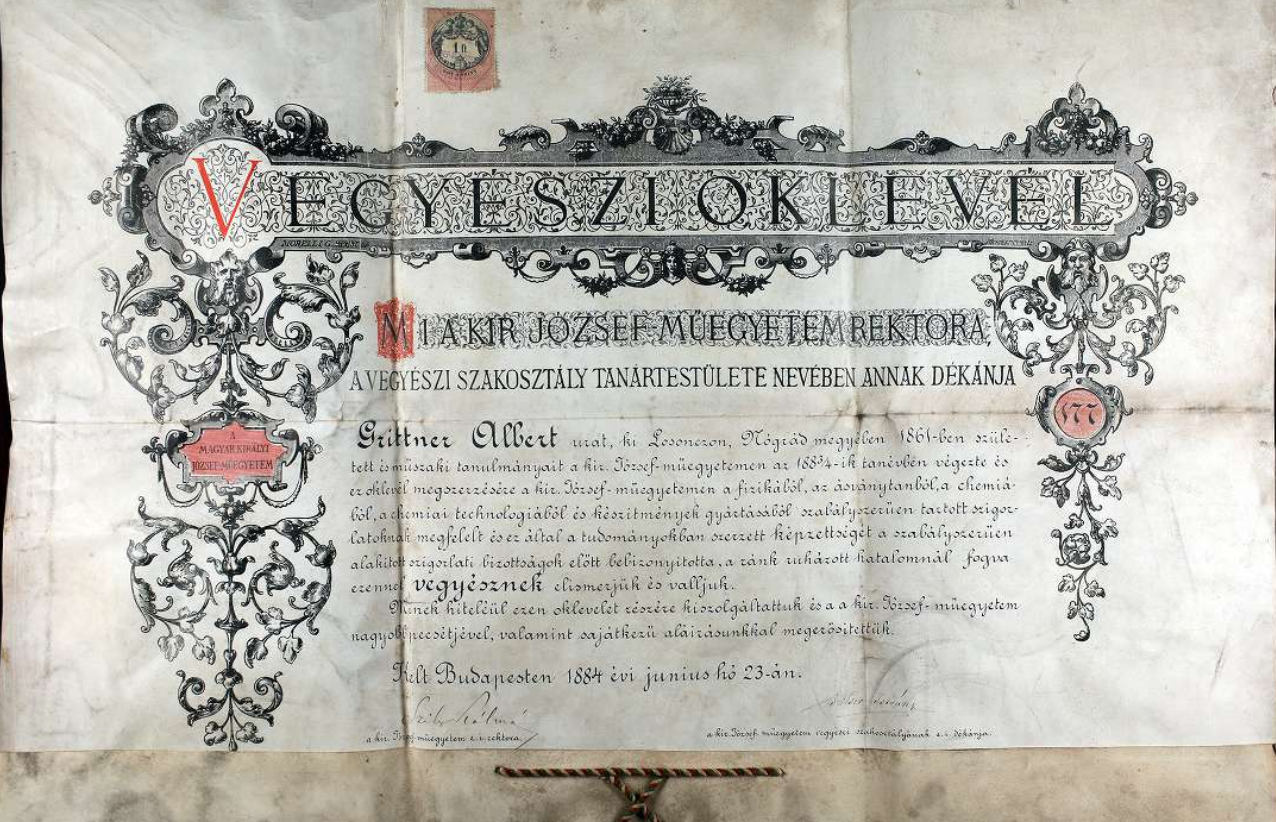 10
VEGYÉSZI OKLEVÉL
MORELLI G.
MI A KIR JÓZSEF-MŰEGYETEM REKTORA,
A VEGYÉSZI SZAKOSZTÁLY TANÁRTESTÜLETE NEVÉBEN ANNAK DÉKÁNJA
177
A
MAGYAR KIRÁLYI
JÓZSEF-MŰEGYETEM
Grittner Albert urat, ki Losonczon, Nógrád megyében 1861-ben szüle-
tett és műszaki tanulmányait a kir. József-műegyetemen az 188¾-ik tanévben végezte és
ez oklevél megszerzésére a kir. József-műegyetemen a fizikából, az ásványtanból, a chemiá-
ból, a chemiai technologiából és készitmények gyártásából szabályszerüen tartott szigor-
latoknak megfelelt és ez által a tudományokban szerzett képzettségét a szabályszerüen
alakitott szigorlati bizottságok előtt bebizonyitotta, a ránk ruházott hatalomnál fogva
ezennel vegyésznek elismerjük és valljuk.
Minek hiteléül ezen oklevelet részére kiszolgáltattuk és a a kir. József-műegyetem
nagyobb pecsétjével, valamint sajátkezü aláirásunkkal megerősitettük.
Kelt Budapesten 1884 évi junius hó 23-án.
Szily Kálmán
a kir. József műegyetem e. i. rektora.
a kir. József műegyetem vegyészi szakosztályának e. i. dékánja.